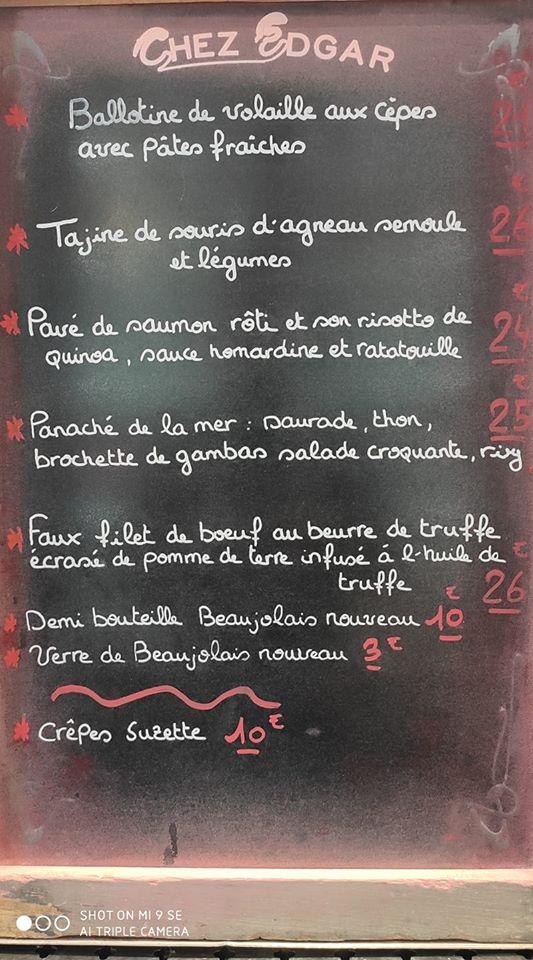 CHEZ EDGAR
Ballotine de volaille aux cèpes
avec pâtes fraîches
€
Tajine de souris d'agneau semoule
et légumes
€
26
Pavé de saumon rôti et son risotto de
quinoa, sauce homardine et ratatouille
€
24
Panaché de la mer : daurade, thon,
brochette de gambas salade croquante, rizy
€
25
Faux filet de boeuf au beurre de truffe
écrasé de pomme de terre infusé á l'huile de
truffe
€
26
Demi bouteille Beaujolais nouveau 10 €
Verre de Beaujolais nouveau 3 €
Crêpes Suzette 10 €
SHOT ON MI 9 SE
AI TRIPLE CAMERA